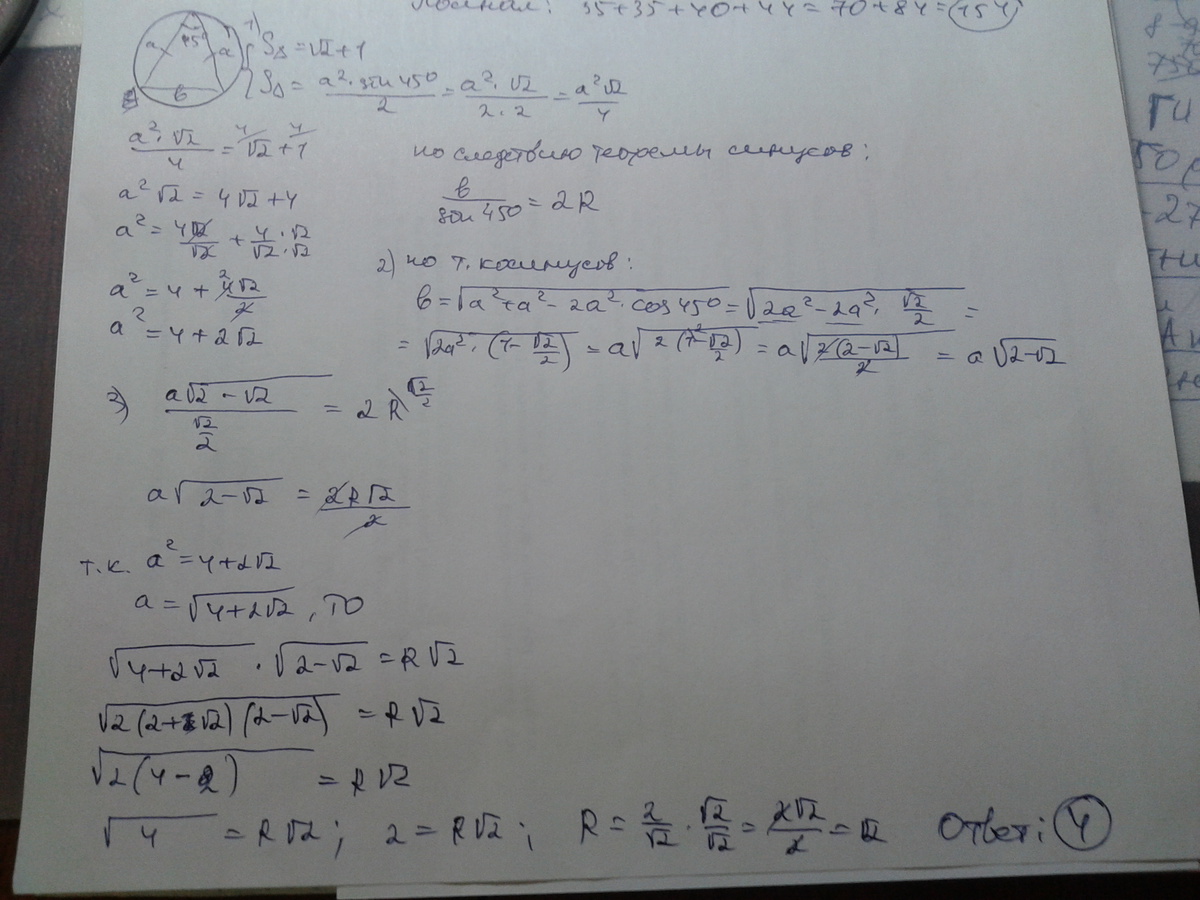 Полная: 35+35+40+44=70+84=154
a 45° a в
1) S△ = √2+1
S△ = a²·sin 45°/2 = a²·√2/2·2 = a²√2/4
a²·√2/4 = ⁴/√2 + ⁴/1
a²√2 = 4√2+4
a² = 4√2/√2 + 4/√2 · √2/√2
a² = 4 + 4√2/2
a² = 4+2√2
по следствию теоремы синусов:
в/sin 45° = 2R
2) по т. косинусов:
в = √(a²+a²-2a²·cos 45°) = √(2a²-2a²·√2/2) =
= √(2a²·(1-√2/2)) = a√(2(1-√2/2)) = a√(2(2-√2)/2) = a√(2-√2)
3) a√(2-√2)/(√2/2) = 2R \√2/2
a√(2-√2) = 2R√2/2
т.к. a² = 4+2√2
a = √(4+2√2), то
√(4+2√2) · √(2-√2) = R√2
√(2(2+√2)(2-√2)) = R√2
√(2(4-2)) = R√2
√4 = R√2; 2 = R√2; R = 2/√2 · √2/√2 = 2√2/2 = √2 Ответ: 4
8-9
750
ГИ
50
-27